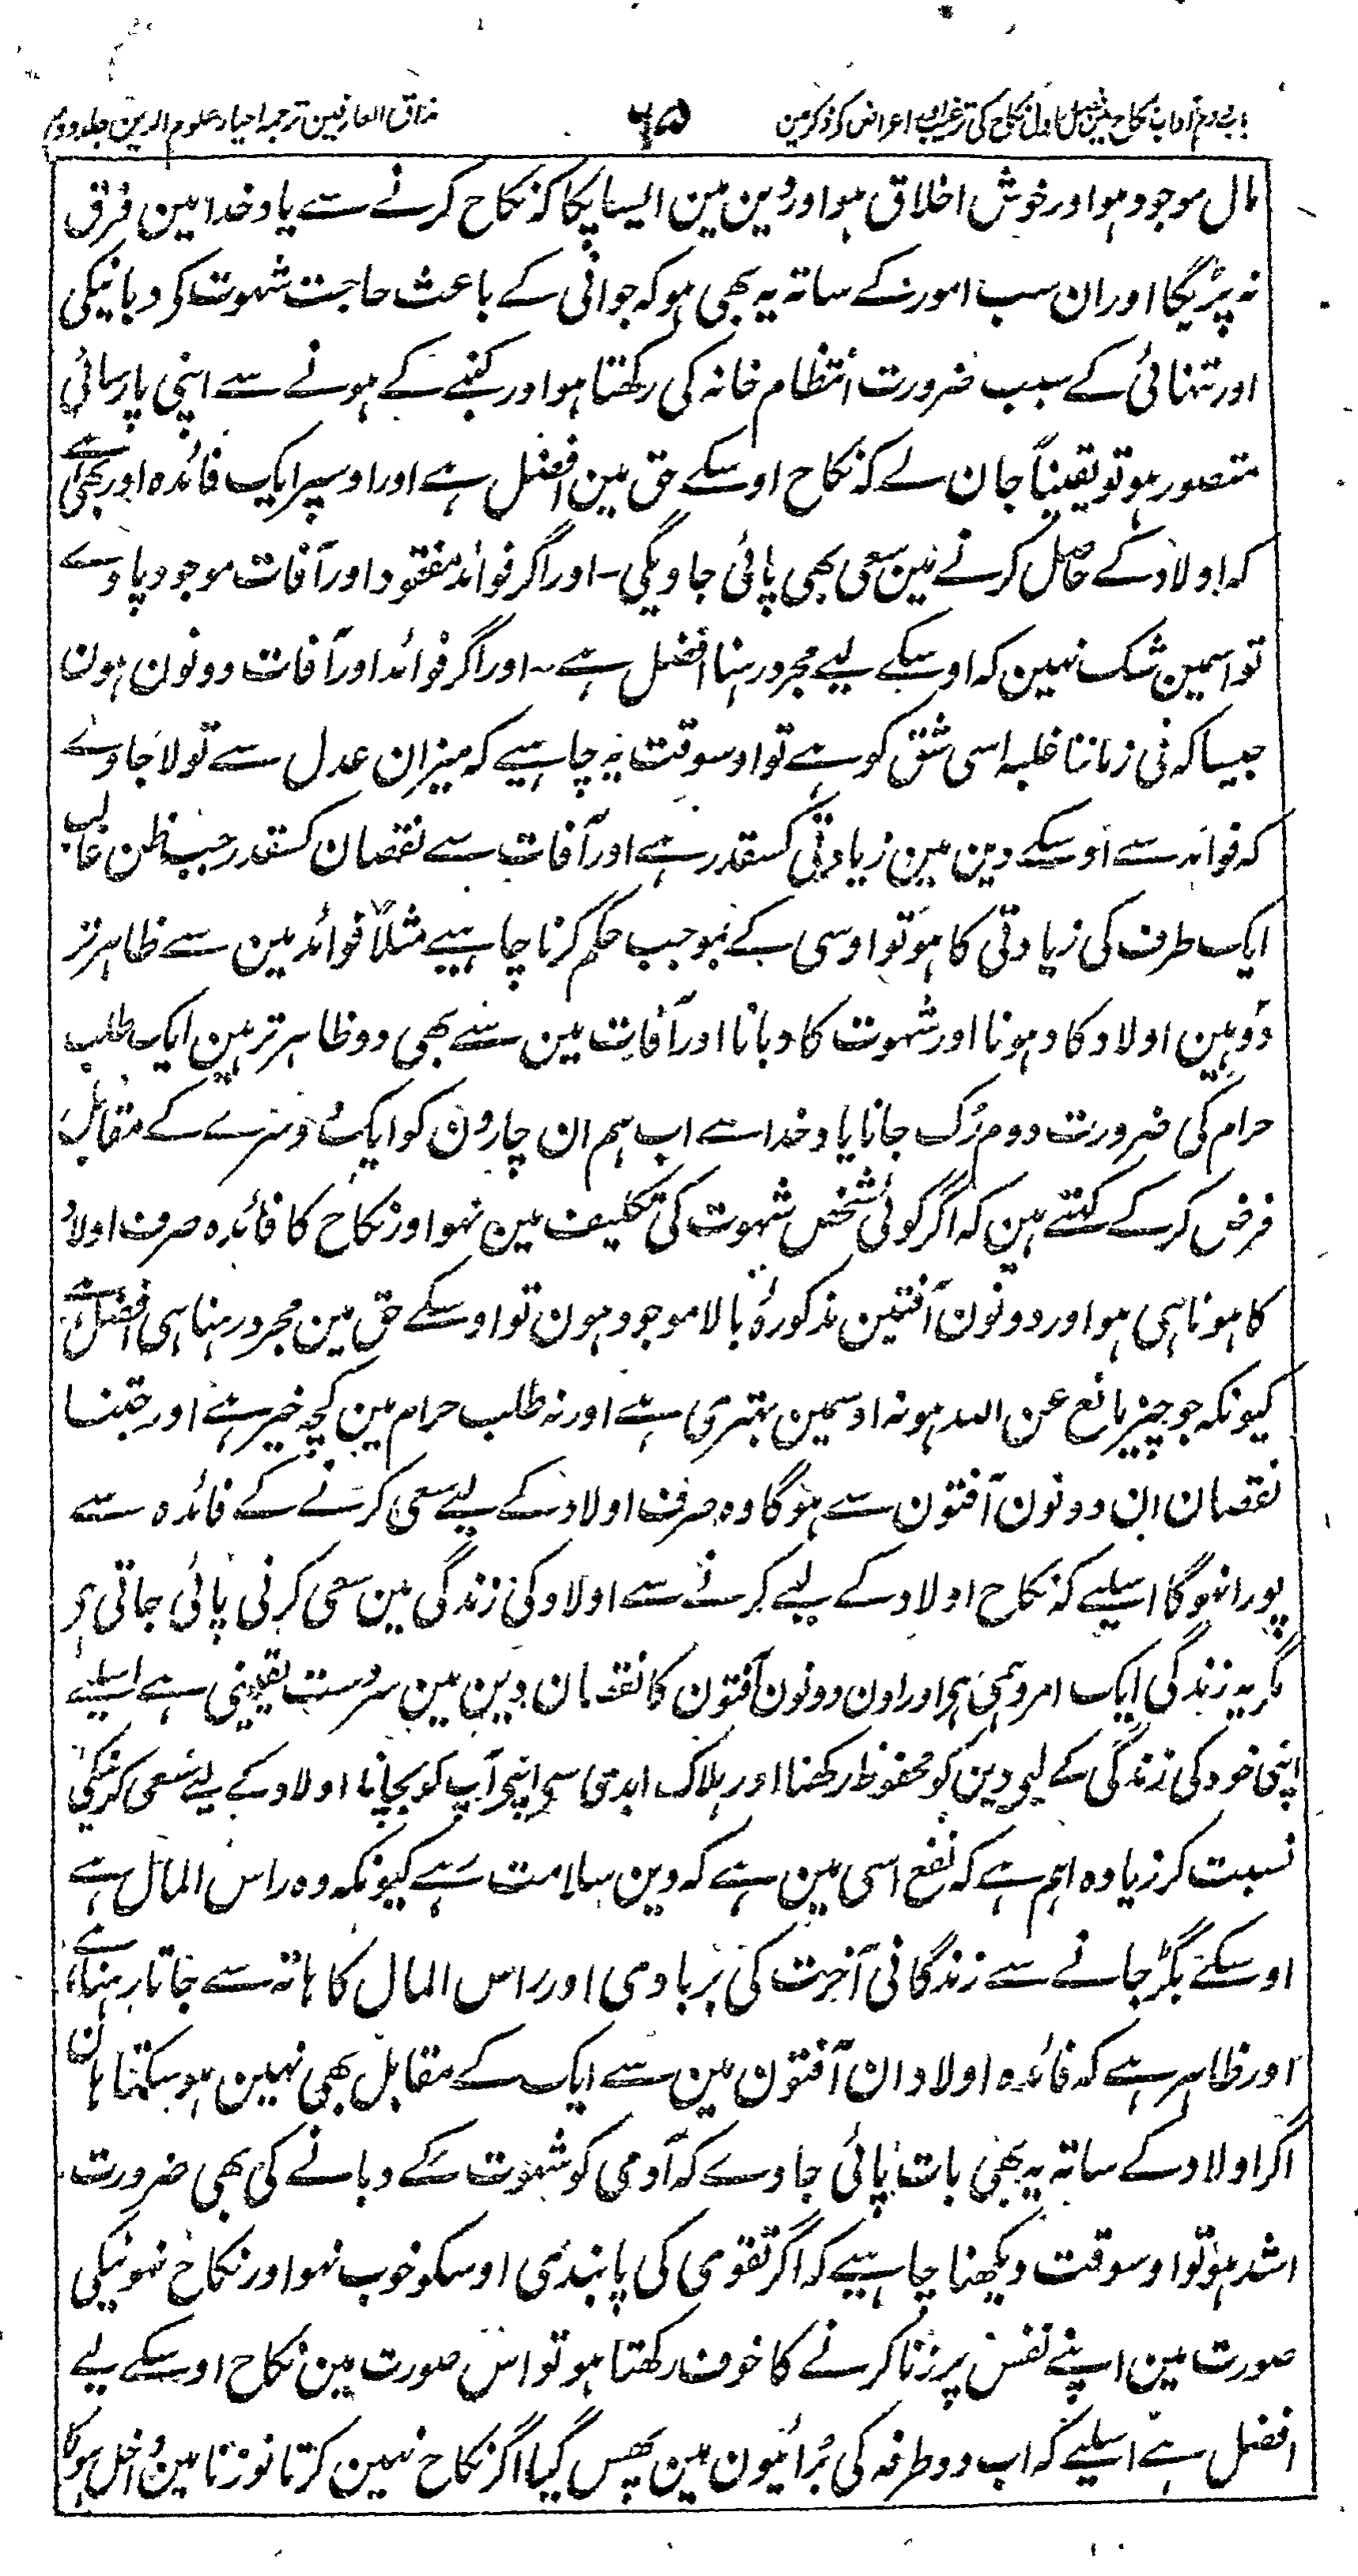 باب دوم آداب نکاح مین فصل اول نکاح کی ترغیب اور اعراض کے ذکر مین
۶۵
مذاق العارفین ترجمہ احیاء علوم الدین جلد دوم
مال موجود ہو اور خوش اخلاق ہو اور دین مین ایسا پکا کہ نکاح کرنے سے یاد خدا مین فرق
نہ پڑیگا اور ان سب امور کے ساتہ یہ بھی ہو کہ جوانی کے باعث حاجت شہوت کو دبانیکی
اور تنہائی کے سبب ضرورت انتظام خانہ کی رکھتا ہو اور کنبے کے ہونے سے اپنی پارسائی
متصور ہو تو یقیناً جان لے کہ نکاح اوسکے حق مین افضل ہے اور اوسپر ایک فائدہ اور بھی ہے
کہ اولاد کے حاصل کرنے مین سعی بھی پائی جاویگی ۔ اور اگر فوائد مفقود اور آفات موجود پاوے
تو اسمین شک نہین کہ اوسکے لیے مجرد رہنا افضل ہے ۔ اور اگر فوائد اور آفات دونون ہون
جیسا کہ فی زماننا غلبہ اسی شق کو ہے تو اوسوقت یہ چاہیے کہ میزان عدل سے تولا جاوے
کہ فوائد سے اوسکے دین مین زیادتی کسقدر ہے اور آفات سے نقصان کسقدر جب ظن غالب
ایک طرف کی زیادتی کا ہو تو اوسی کے بموجب حکم کرنا چاہیے مثلاً فوائد مین سے ظاہر تر
دو ہین اولاد کا ہونا اور شہوت کا دبانا اور آفات مین سے بھی دو ظاہر تر ہین ایک طلب
حرام کی ضرورت دوم رک جانا یاد خدا سے اب ہم ان چارون کو ایک دوسرے کے مقابل
فرض کر کے کہتے ہین کہ اگر کوئی شخص شہوت کی تکلیف مین نہو اور نکاح کا فائدہ صرف اولاد
کا ہونا ہی ہو اور دونون آفتین مذکورۂ بالا موجود ہون تو اوسکے حق مین مجرد رہنا ہی افضل ہے
کیونکہ جو چیز مانع عن اللہ ہو نہ اوسمین بہتری ہے اور نہ طلب حرام مین کچھ خیر ہے اور جتنا
نقصان ان دونون آفتون سے ہوگا وہ صرف اولاد کے لیے سعی کرنے کے فائدہ سے
پورا نہوگا اسلیے کہ نکاح اولاد کے لیے کرنے سے اولاد کی زندگی مین سعی کرنی پائی جاتی ہی
مگر یہ زندگی ایک امر وہمی ہی اور اون دونون آفتون کا نقصان دین مین سردست یقینی ہے اسلیے
اپنی خود کی زندگی کے لیے دین کو محفوظ رکھنا اور ہلاک ابدی سے اپنے آپ کو بچانا اولاد کے لیے سعی کرنیکی
نسبت کر زیادہ اہم ہے کہ نفع اسی مین ہے کہ دین سلامت رہے کیونکہ وہ راس المال ہے
اوسکے بگڑ جانے سے زندگانی آخرت کی بربادی اور راس المال کا ہاتہ سے جاتا رہنا ہے
اور ظاہر ہے کہ فائدہ اولاد ان آفتون مین سے ایک کے مقابل بھی نہین ہو سکتا ہان
اگر اولاد کے ساتہ یہ بھی بات پائی جاوے کہ آدمی کو شہوت کے دبانے کی بھی ضرورت
اشد ہو تو اوسوقت دیکھنا چاہیے کہ اگر تقوی کی پابندی اوسکو خوب نہو اور نکاح نہونیکی
صورت مین اپنے نفس پر زنا کرنے کا خوف رکھتا ہو تو اس صورت مین نکاح اوسکے لیے
افضل ہے اسلیے کہ اب دو طرفہ کی برائیون مین پھس گیا اگر نکاح نہین کرتا تو زنا مین داخل ہوگا